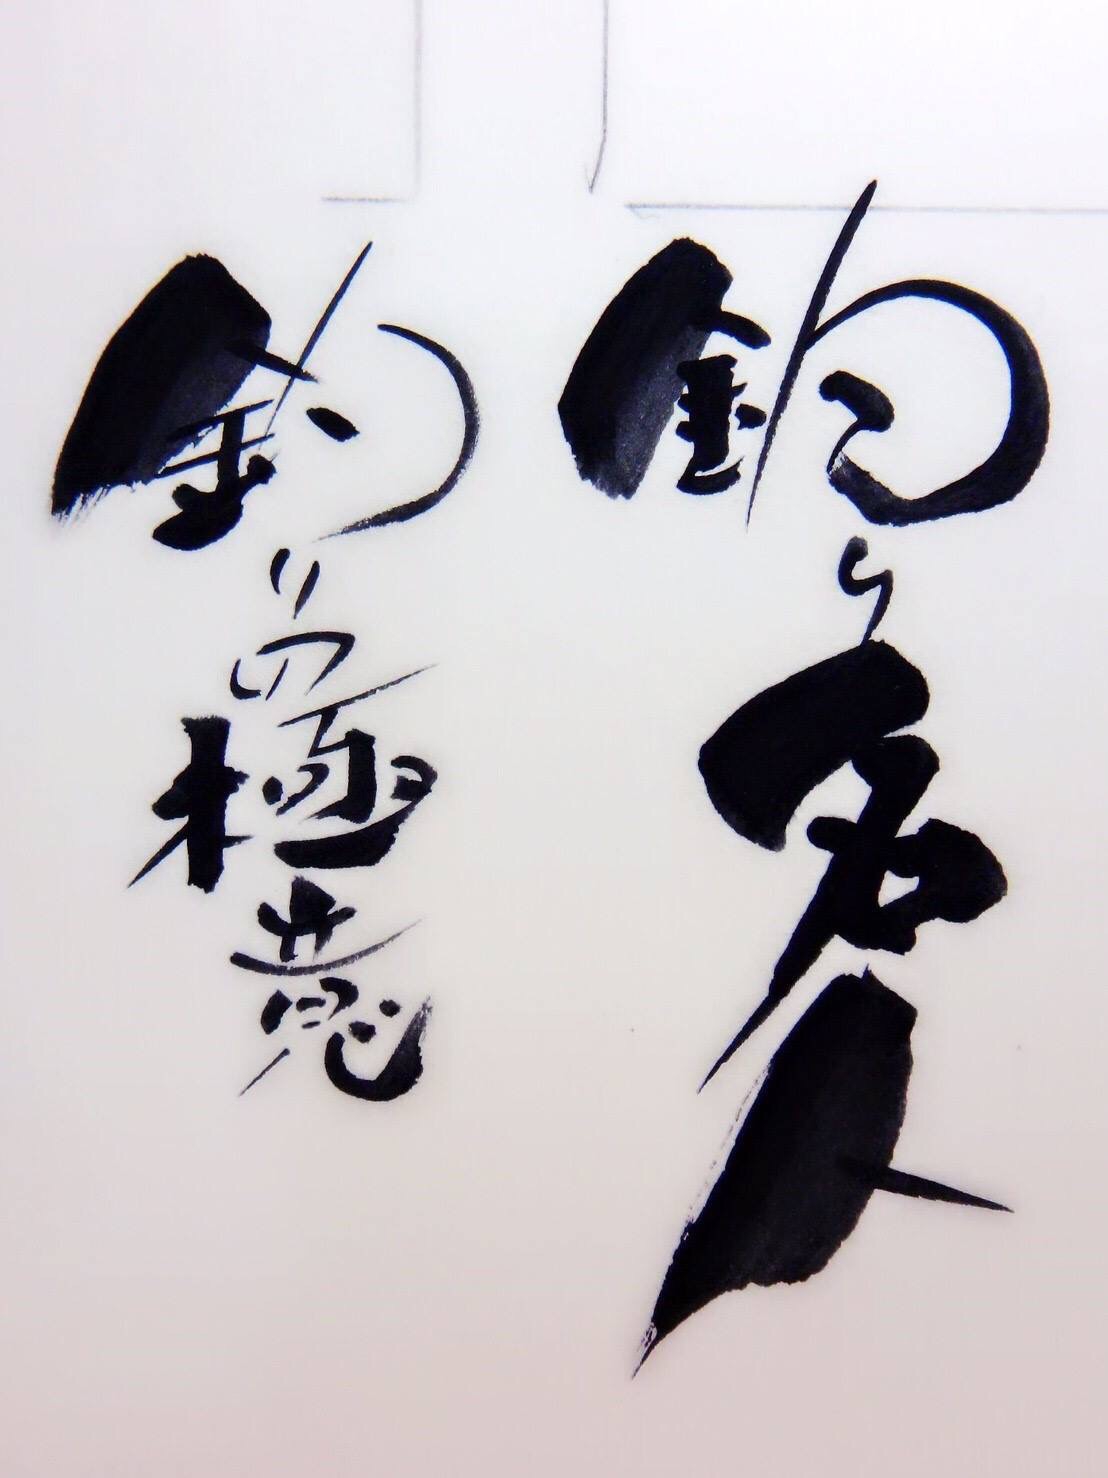 釣り名人
釣りの極意